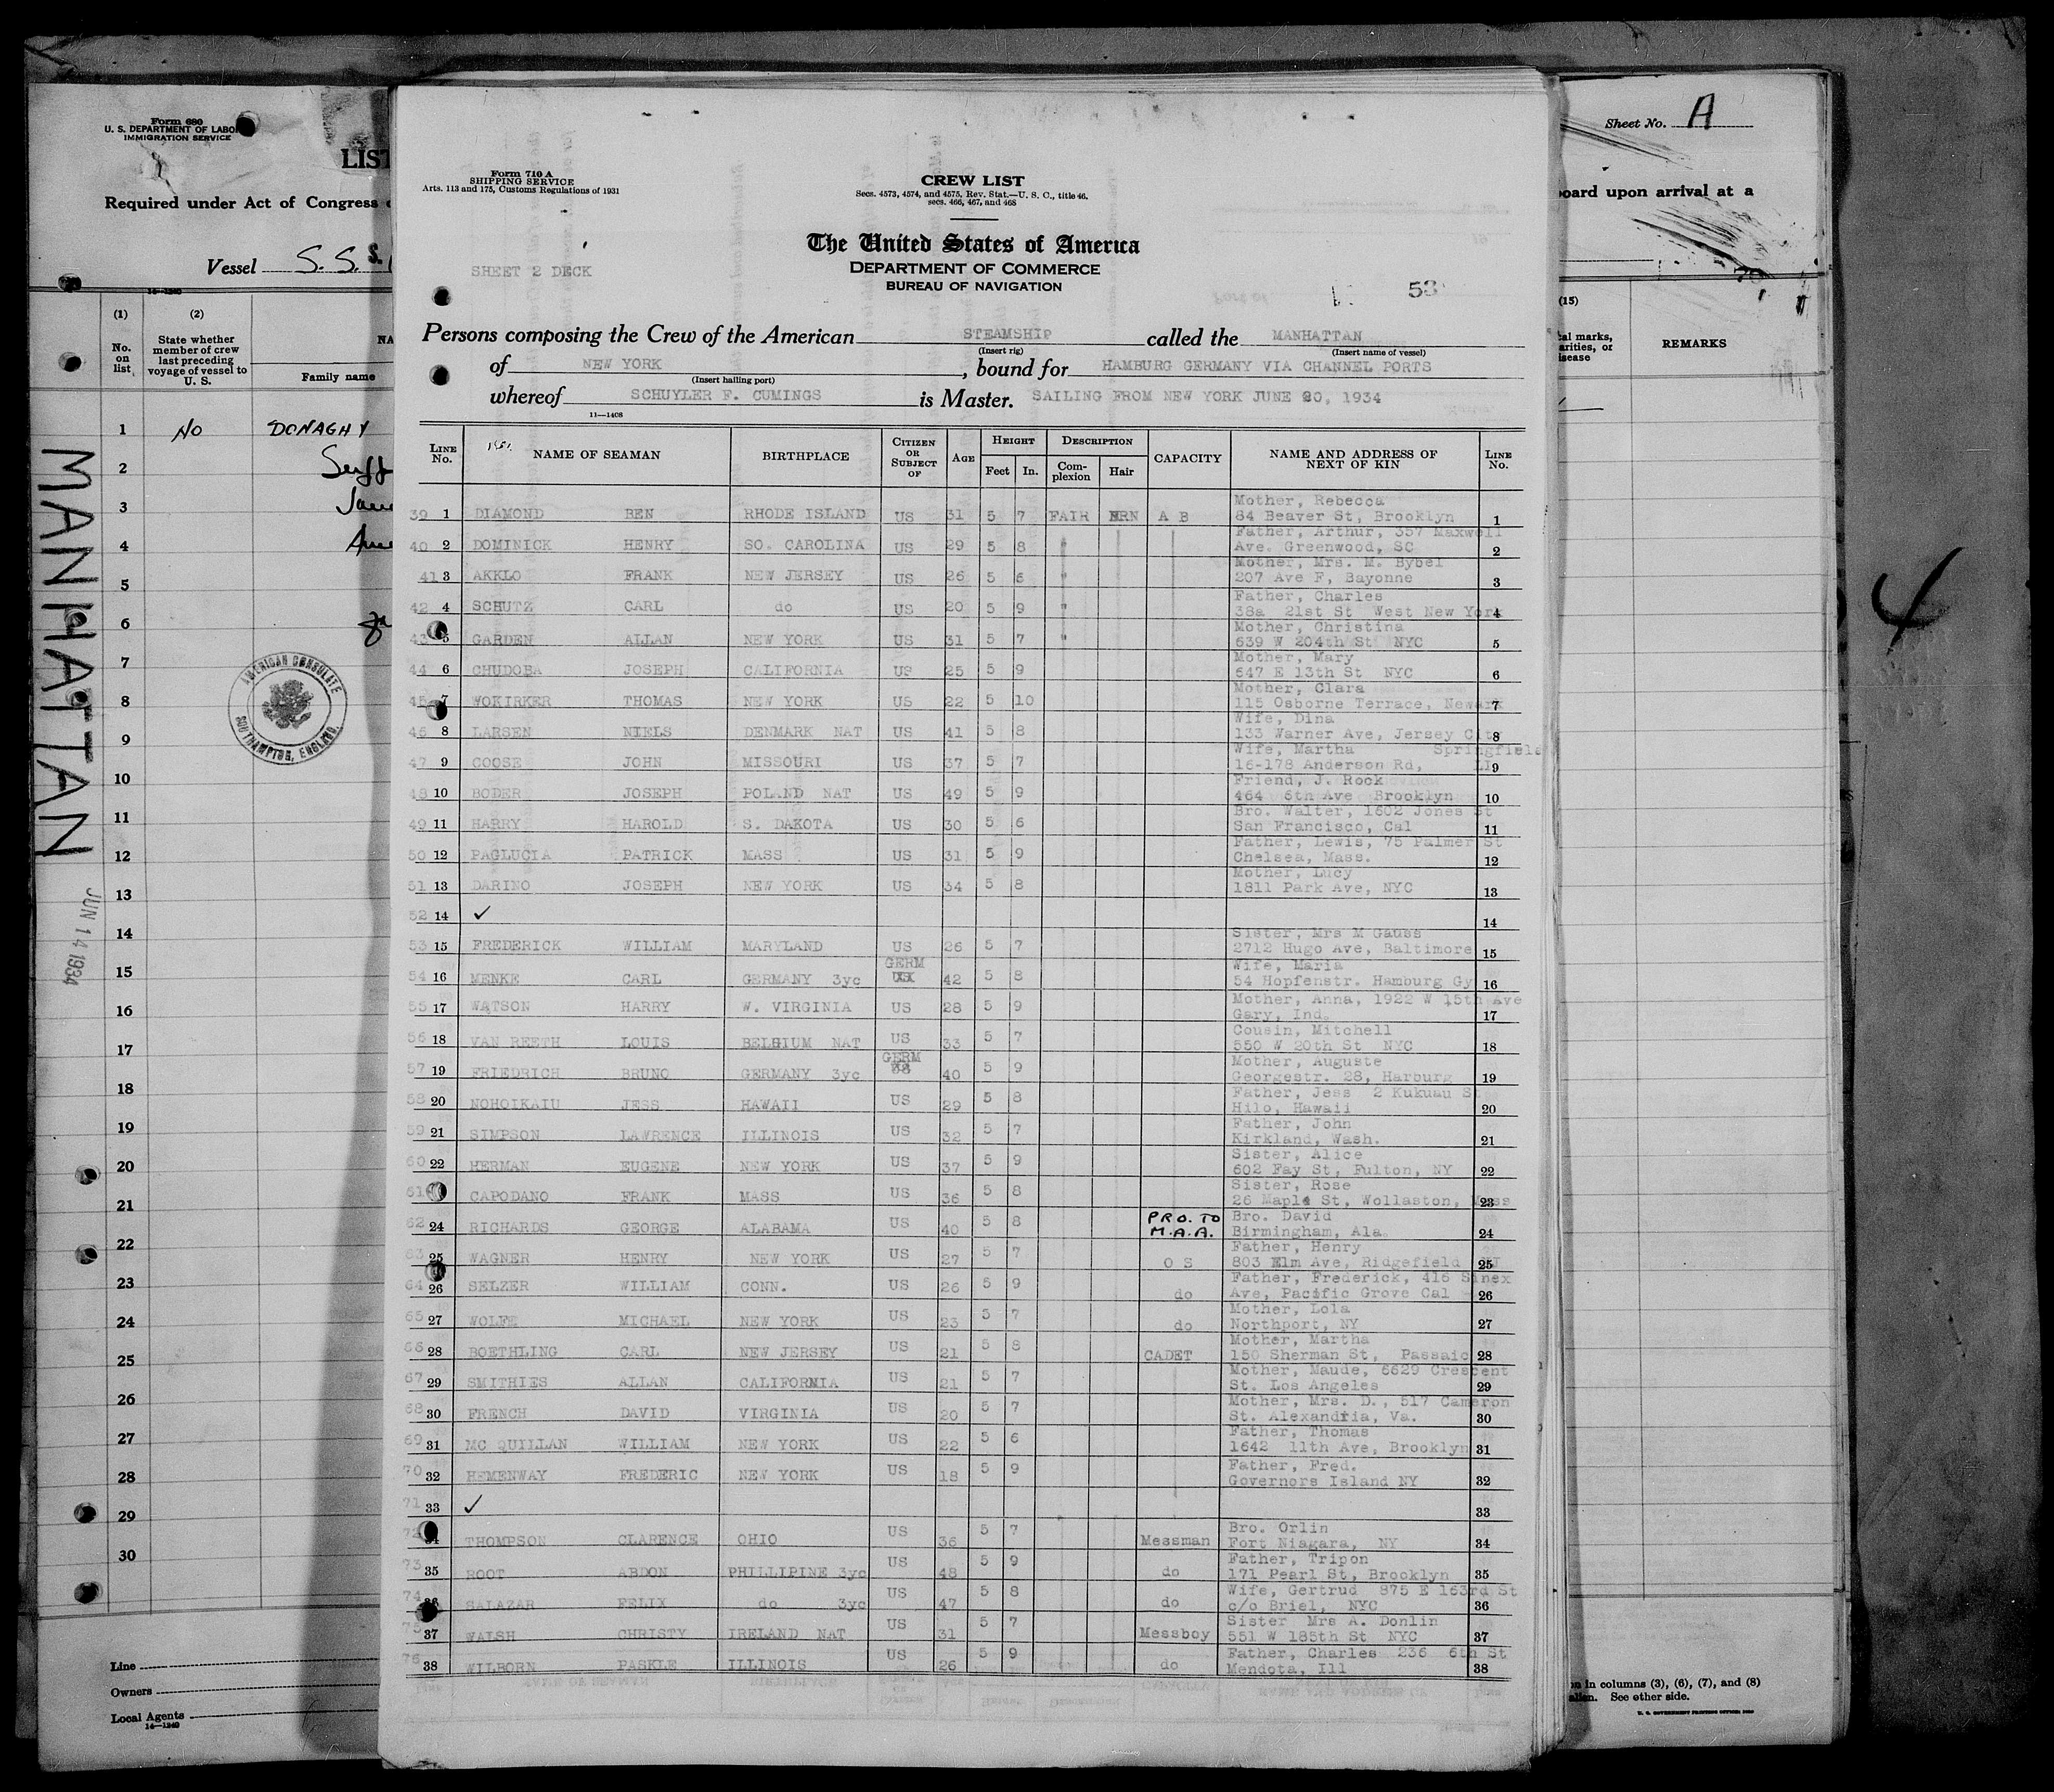 Form 680
U. S. DEPARTMENT OF LABOR
IMMIGRATION SERVICE
LIST
Required under Act of Congress
Vessel S. S. S.
(1) (2)
No. on list
State whether member of crew last preceding voyage of vessel to U. S.
Family name
1 No DONAGHY
2
3
4
5
6
7
8
9
10
11
12
13
14
15
16
17
18
19
20
21
22
23
24
25
26
27
28
29
30
AMERICAN CONSULATE
SOUTHAMPTON, ENGLAND.
MANHATTAN
JUN 14 1934
Line
Owners
Local Agents
14—1240
Form 710 A
SHIPPING SERVICE
Arts. 113 and 175, Customs Regulations of 1931
CREW LIST
Secs. 4573, 4574, and 4575, Rev. Stat.—U. S. C., title 46,
secs. 466, 467, and 468
The United States of America
DEPARTMENT OF COMMERCE
BUREAU OF NAVIGATION
SHEET 2 DECK
53
Persons composing the Crew of the American STEAMSHIP called the MANHATTAN
(Insert rig) (Insert name of vessel)
of NEW YORK, bound for HAMBURG GERMANY VIA CHANNEL PORTS
(Insert hailing port)
whereof SCHUYLER F. CUMINGS is Master. SAILING FROM NEW YORK JUNE 20, 1934
11—1408
LINE No. NAME OF SEAMAN BIRTHPLACE CITIZEN OR SUBJECT OF AGE HEIGHT Feet In. DESCRIPTION Complexion Hair CAPACITY NAME AND ADDRESS OF NEXT OF KIN LINE No.
39 1 DIAMOND BEN RHODE ISLAND US 31 5 7 FAIR BRN A B Mother, Rebecca 84 Beaver St, Brooklyn 1
40 2 DOMINICK HENRY SO. CAROLINA US 29 5 8 " Father, Arthur, 357 Maxwell Ave. Greenwood, SC 2
41 3 AKKLO FRANK NEW JERSEY US 26 5 6 " Mother, Mrs. M. Bybel 207 Ave F, Bayonne 3
42 4 SCHUTZ CARL do US 20 5 9 " Father, Charles 38a 21st St West New York 4
43 5 GARDEN ALLAN NEW YORK US 31 5 7 " Mother, Christina 639 W 204th St NYC 5
44 6 CHUDOBA JOSEPH CALIFORNIA US 25 5 9 Mother, Mary 647 E 13th St NYC 6
45 7 WOKIRKER THOMAS NEW YORK US 22 5 10 Mother, Clara 115 Osborne Terrace, Newark 7
46 8 LARSEN NIELS DENMARK NAT US 41 5 8 Wife, Dina 133 Warner Ave, Jersey City 8
47 9 COOSE JOHN MISSOURI US 37 5 7 Wife, Martha Springfield 16-178 Anderson Rd, LI 9
48 10 BODER JOSEPH POLAND NAT US 49 5 9 Friend, J. Rock 464 6th Ave Brooklyn 10
49 11 HARRY HAROLD S. DAKOTA US 30 5 6 Bro. Walter, 1602 Jones St San Francisco, Cal 11
50 12 PAGLUCIA PATRICK MASS US 31 5 9 Father, Lewis, 75 Palmer St Chelsea, Mass. 12
51 13 DARINO JOSEPH NEW YORK US 34 5 8 Mother, Lucy 1811 Park Ave, NYC 13
52 14 ✓ 14
53 15 FREDERICK WILLIAM MARYLAND US 26 5 7 Sister, Mrs M Gauss 2712 Hugo Ave, Baltimore 15
54 16 MENKE CARL GERMANY 3yc GERM 42 5 8 Wife, Maria 54 Hopfenstr. Hamburg Gy 16
55 17 WATSON HARRY W. VIRGINIA US 28 5 9 Mother, Anna, 1922 W 15th Ave Gary, Ind. 17
56 18 VAN REETH LOUIS BELGIUM NAT US 33 5 7 Cousin, Mitchell 550 W 20th St NYC 18
57 19 FRIEDRICH BRUNO GERMANY 3yc GERM 40 5 9 Mother, Auguste Georgestr. 28, Harburg 19
58 20 NOHOIKAIU JESS HAWAII US 29 5 8 Father, Jess 2 Kukuau St Hilo, Hawaii 20
59 21 SIMPSON LAWRENCE ILLINOIS US 32 5 7 Father, John Kirkland, Wash. 21
60 22 HERMAN EUGENE NEW YORK US 37 5 9 Sister, Alice 602 Fay St, Fulton, NY 22
61 CAPODANO FRANK MASS US 36 5 8 Sister, Rose 26 Maple St, Wollaston, Mass 23
62 24 RICHARDS GEORGE ALABAMA US 40 5 8 PRO. TO M.A.A. Bro. David Birmingham, Ala. 24
63 25 WAGNER HENRY NEW YORK US 27 5 7 O S Father, Henry 803 Elm Ave, Ridgefield NJ 25
64 26 SELZER WILLIAM CONN. US 26 5 9 do Father, Frederick, 416 Sinex Ave, Pacific Grove Cal 26
65 27 WOLFE MICHAEL NEW YORK US 23 5 7 do Mother, Lola Northport, NY 27
66 28 BOETHLING CARL NEW JERSEY US 21 5 8 CADET Mother, Martha 150 Sherman St, Passaic 28
67 29 SMITHIES ALLAN CALIFORNIA US 21 5 7 Mother, Maude, 6629 Crescent St. Los Angeles 29
68 30 FRENCH DAVID VIRGINIA US 20 5 7 Mother, Mrs. D., 517 Cameron St. Alexandria, Va. 30
69 31 MC QUILLAN WILLIAM NEW YORK US 22 5 6 Father, Thomas 1642 11th Ave, Brooklyn 31
70 32 HEMENWAY FREDERIC NEW YORK US 18 5 9 Father, Fred. Governors Island NY 32
71 33 ✓ 33
72 34 THOMPSON CLARENCE OHIO US 36 5 7 Messman Bro. Orlin Fort Niagara, NY 34
73 35 ROOT ABDON PHILLIPINE 3yc US 48 5 9 do Father, Tripon 171 Pearl St, Brooklyn 35
74 36 SALAZAR FELIX do 3yc US 47 5 8 do Wife, Gertrud 875 E 163rd St c/o Briel, NYC 36
75 37 WALSH CHRISTY IRELAND NAT US 31 5 7 Messboy Sister Mrs A. Donlin 551 W 185th St NYC 37
76 38 WILBORN PASKLE ILLINOIS US 26 5 9 do Father, Charles 236 6th St Mendota, Ill 38
Sheet No. A
board upon arrival at a
(15)
marks,
or
disease
REMARKS
4
in columns (3), (6), (7), and (8)
alien. See other side.
U. S. GOVERNMENT PRINTING OFFICE